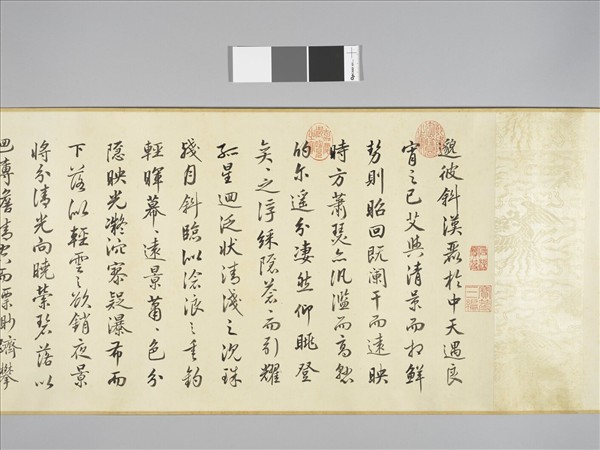 邈彼斜漢麗於中天遇良
宵之已艾與清景而相鮮
勢則昭回既闌干而遠映
時方蕭瑟亦汎濫而高懸
的尔遥分凄然仰眺登
之浮綵隱蒼〻而引耀
孤星迥泛狀清淺之沉珠
殘月斜臨似滄浪之垂釣
輕暉幕〻遠景蕭〻色分
隱映光凝泬寥疑瀑布而
下落似輕雲之欲銷夜景
將分清光向曉縈碧落以